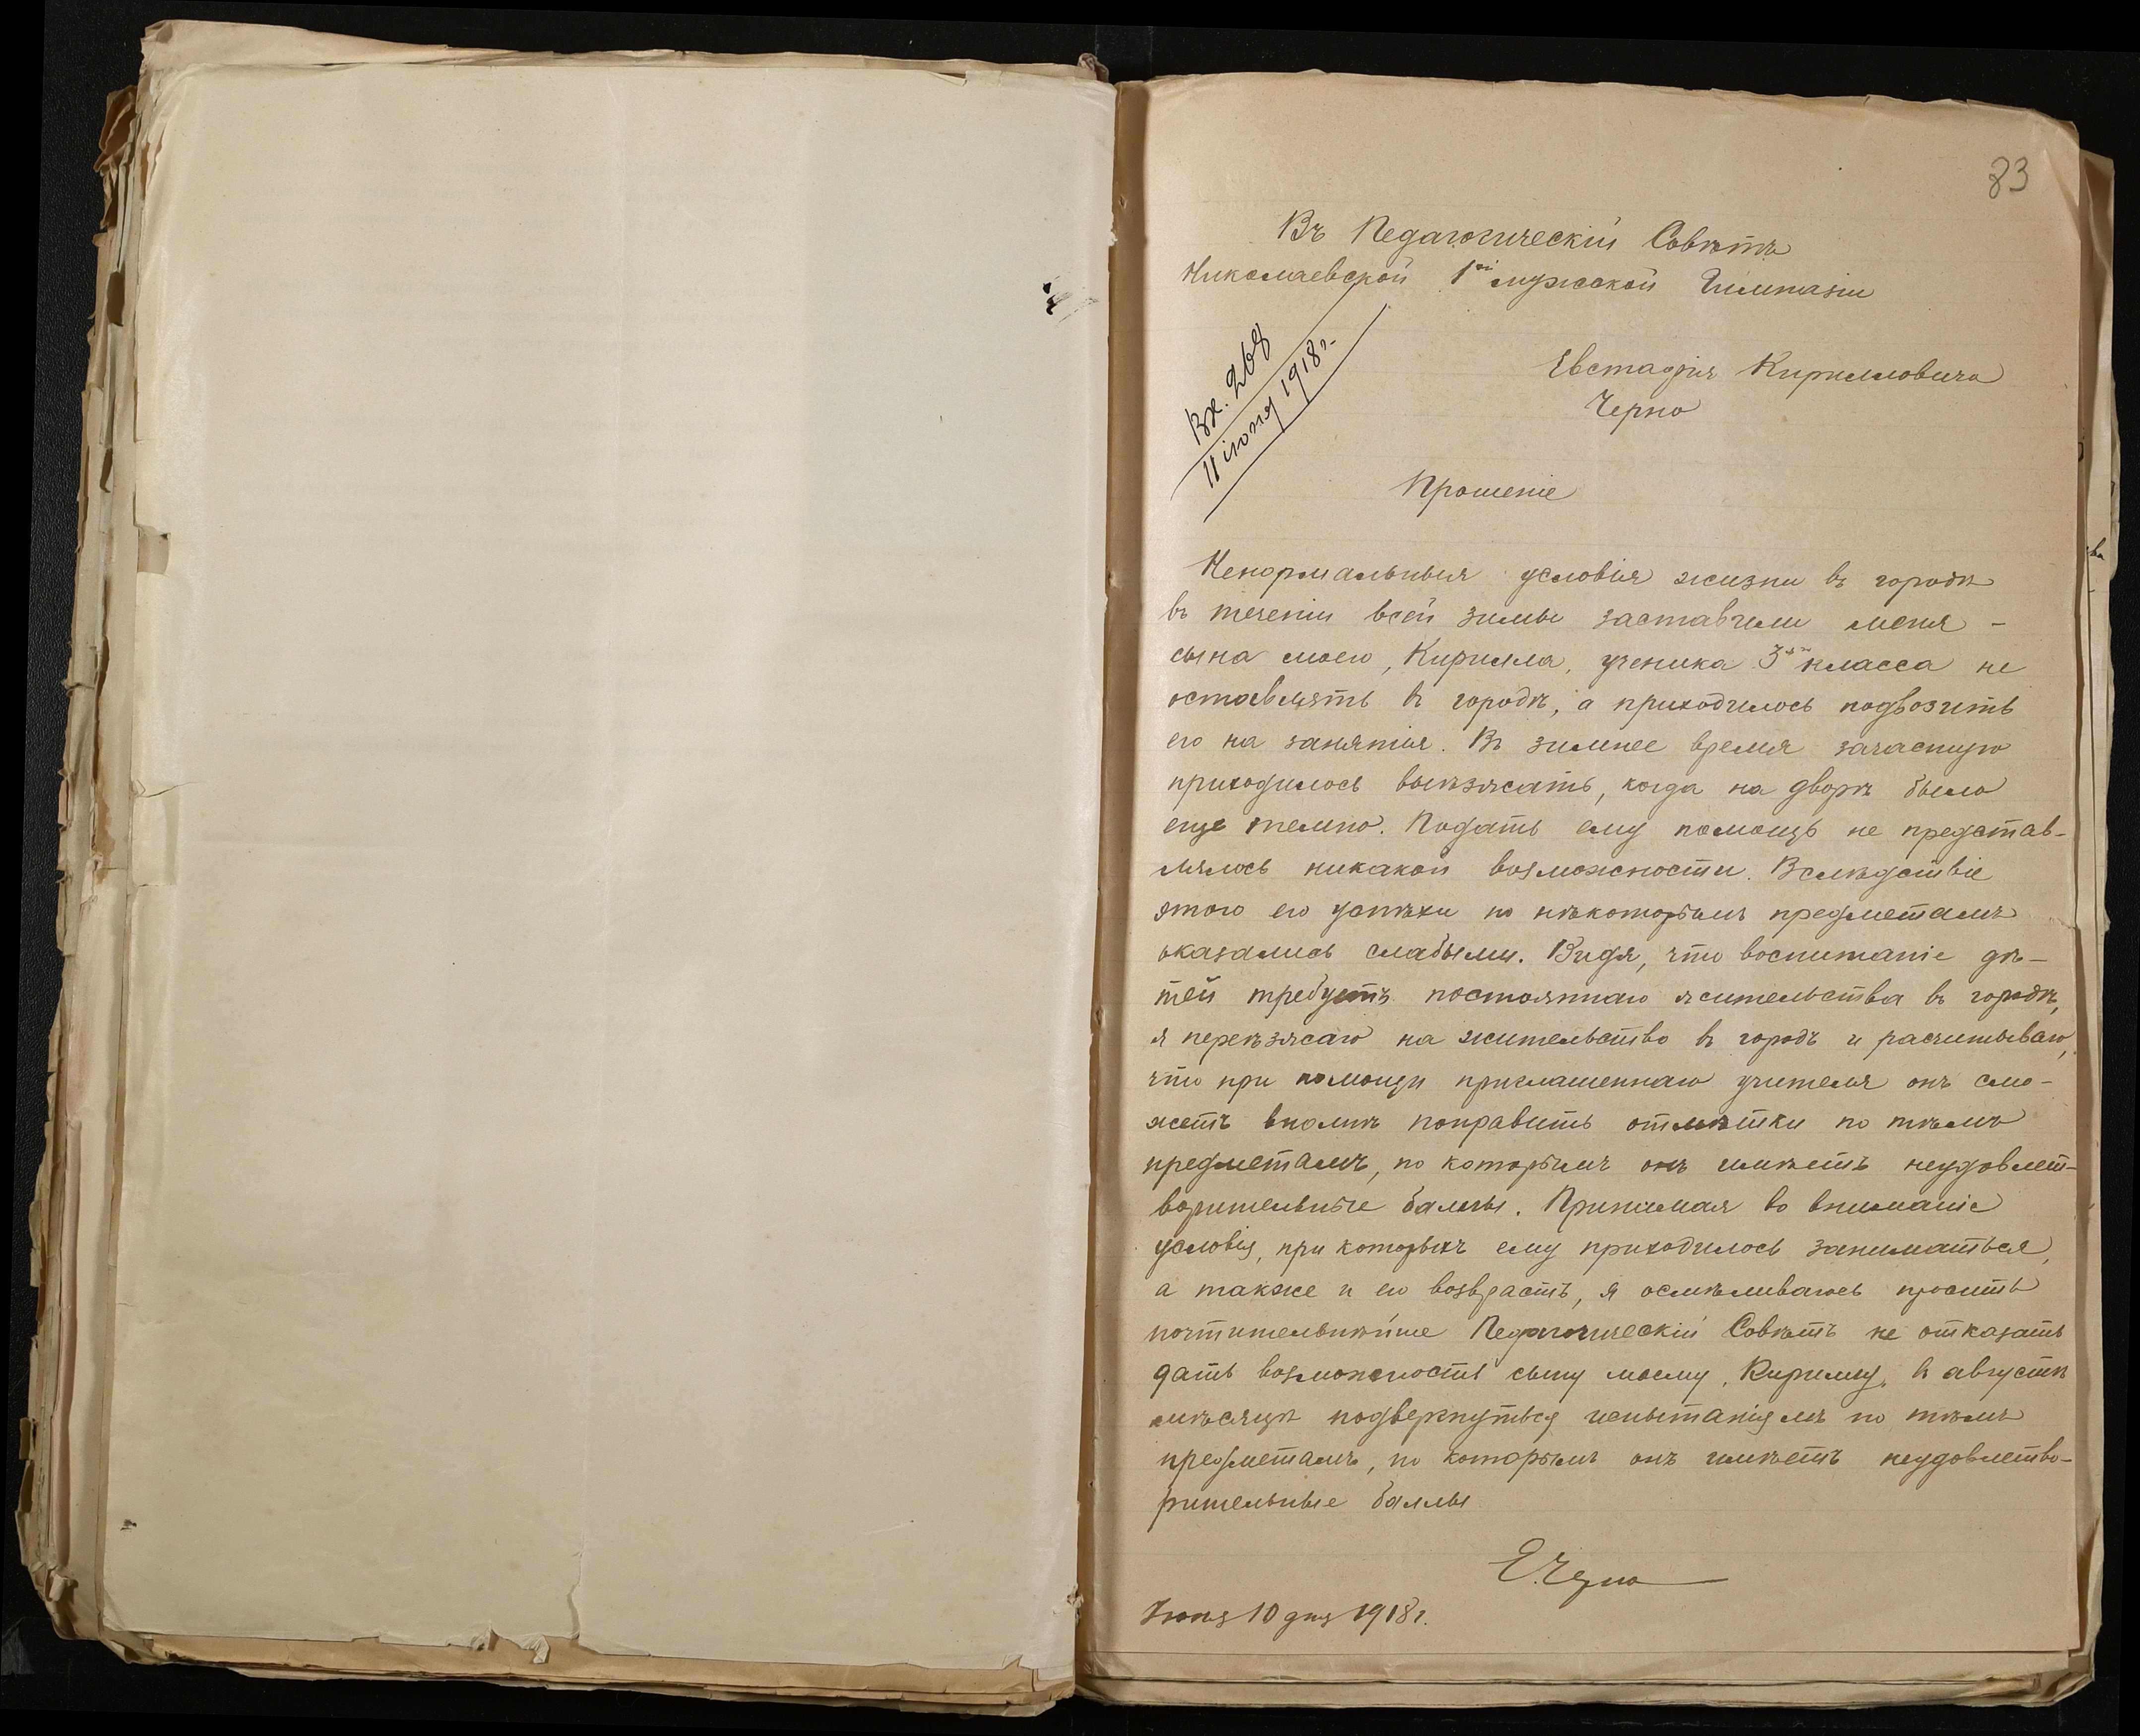 83
Въ Педагогическій Совѣтъ
Николаевской 1ой мужской Гимназіи
Вх. 268
11 іюня 1918 г.
Евстафія Кирилловича
Черно
Прошеніе
Ненормальныя условія жизни въ городѣ
въ теченіи всей зимы заставили меня –
сына моего, Кирилла, ученика 3го класса не
оставлять въ городѣ, а приходилось подвозить
его на занятія. Въ зимнее время зачастую
приходилось выѣзжать, когда на дворѣ было
еще темно. Подать ему помощь не представ-
лялось никакой возможности. Вслѣдствіе
этого его успѣхи по нѣкоторымъ предметамъ
оказались слабыми. Видя, что воспитаніе дѣ-
тей требуетъ постояннаго жительства въ городѣ,
я переѣзжаю на жительство въ городъ и расчитываю,
что при помощи приглашеннаго учителя онъ смо-
жетъ вполнѣ поправить отмѣтки по тѣмъ
предметамъ, по которымъ онъ имѣетъ неудовлет-
ворительные баллы. Принимая во вниманіе
условія, при которыхъ ему приходилось заниматься,
а также и его возврастъ, я осмѣливаюсь просить
почтительнѣйше Педагогическій Совѣтъ не отказать
дать возможность сыну моему, Кириллу, въ августѣ
мѣсяцѣ подвергнуться испытаніямъ по тѣмъ
предметамъ, по которымъ онъ имѣетъ неудовлетво-
рительные баллы
Е. Черно
Іюня 10 дня 1918 г.